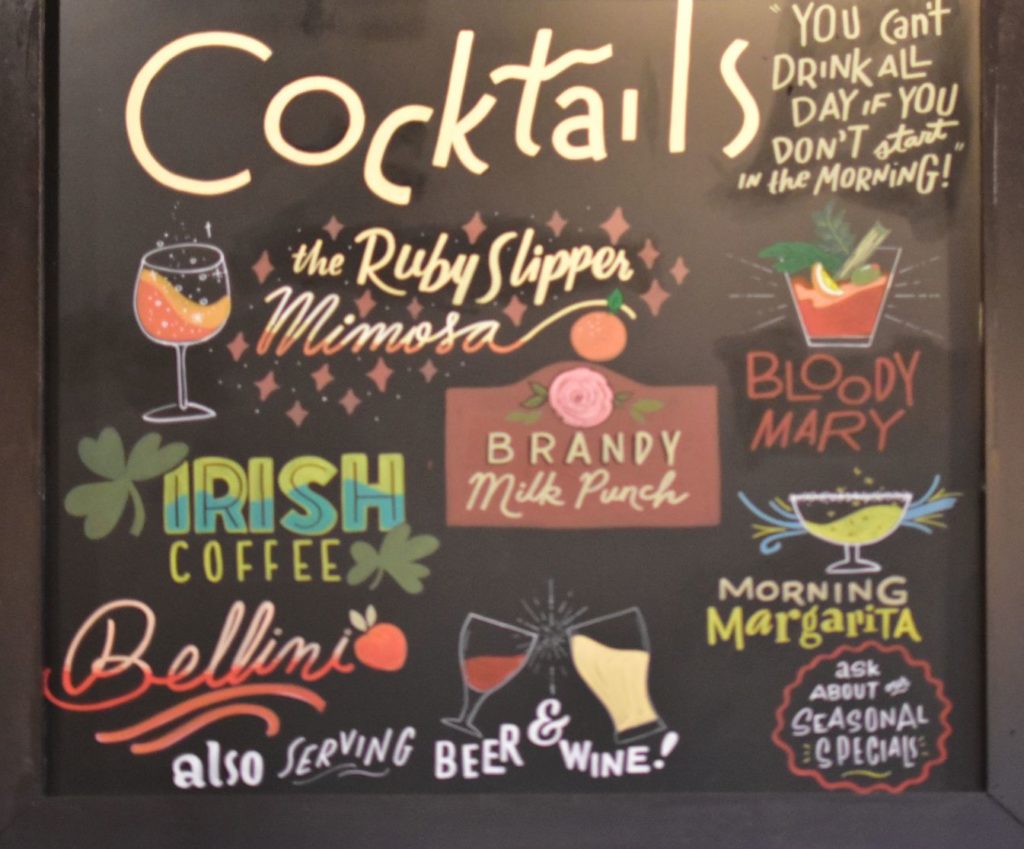 Cocktails
"YOU Can't
DRINK ALL
DAY IF YOU
DON'T start
IN the MORNING!"
the Ruby Slipper
Mimosa
BLOODY
MARY
BRANDY
Milk Punch
IRISH
COFFEE
MORNING
MargariTA
Bellini
also SERVING BEER & WINE!
ask
ABOUT
SEASONAL
SPECIALS